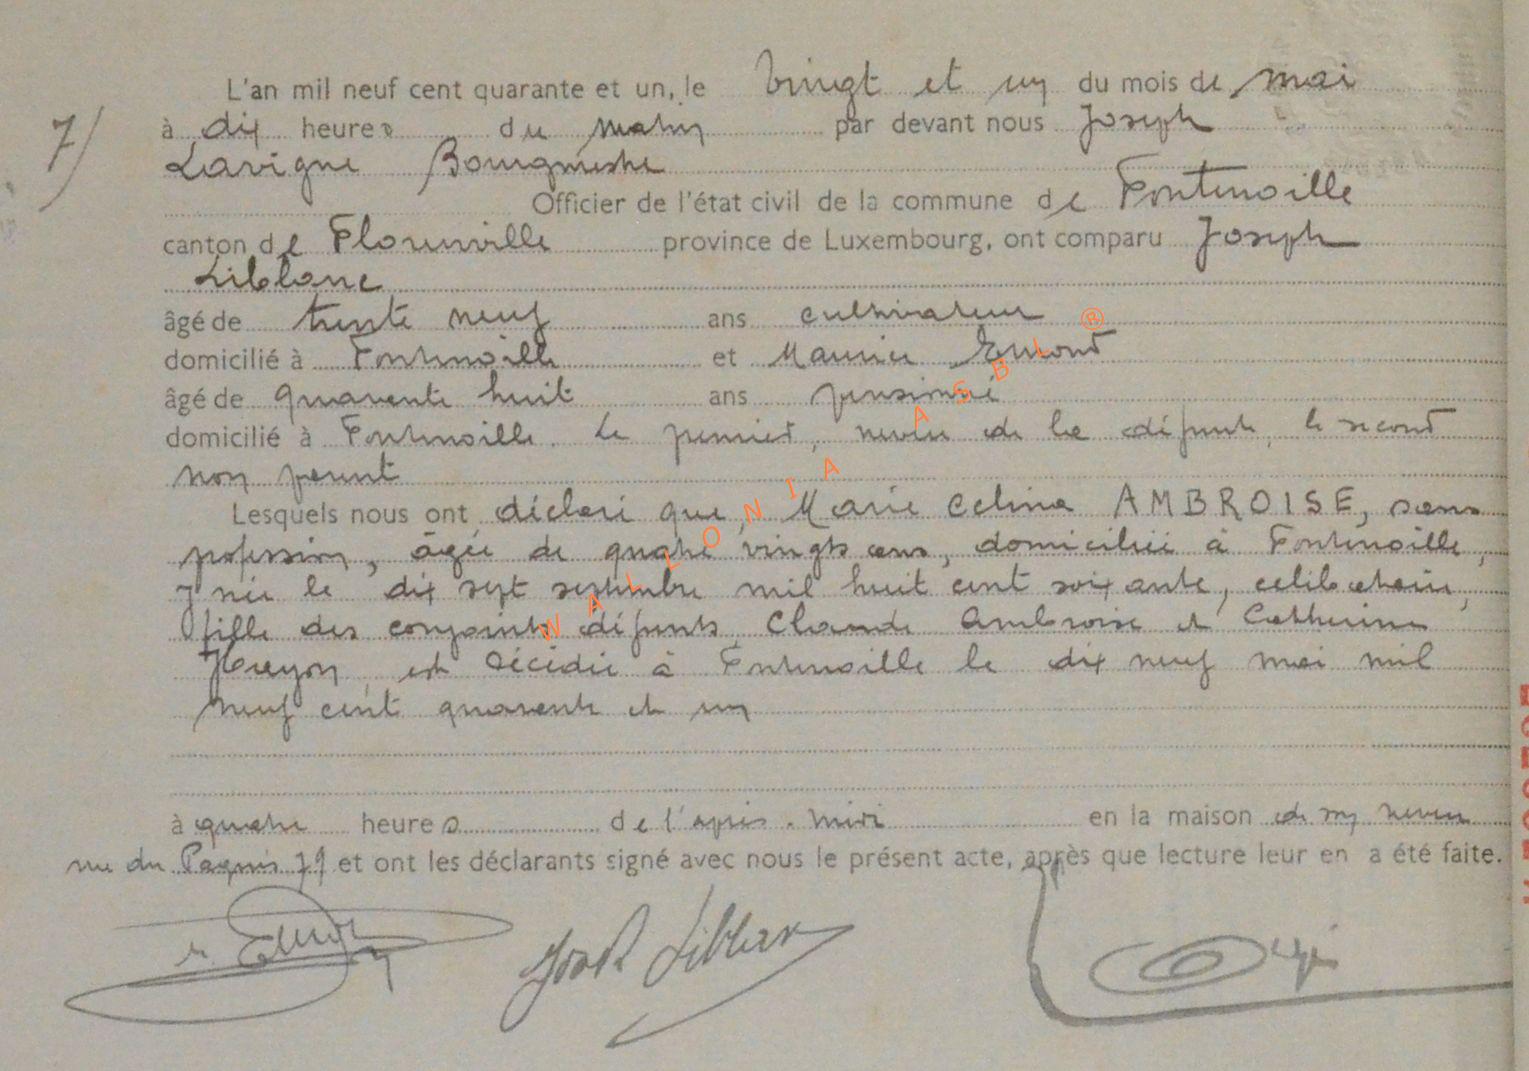 L'an mil neuf cent quarante et un, le vingt et un du mois de mai
7/ à dix heures du matin par devant nous Joseph
Lavigne Bourgmestre
Officier de l'état civil de la commune de Fontenoille
canton de Florenville province de Luxembourg, ont comparu Joseph
Leblanc
âgé de trente neuf ans cultivateur
domicilié à Fontenoille et Maurice Emond
âgé de quarante huit ans pensionné
domicilié à Fontenoille. Le premier, neveu de la défunte, le second
non parent
Lesquels nous ont déclaré que, Marie Celina AMBROISE, sans
profession, âgée de quatre vingts ans, domiciliée à Fontenoille,
y née le dix sept septembre mil huit cent soixante, celibataire,
fille des conjoints défunts, Claude Ambroise et Catherine
est décédée à Fontenoille le dix neuf mai mil
neuf cent quarante et un
à quatre heures de l'après-midi en la maison de son neveu
rue du Paquis 79 et ont les déclarants signé avec nous le présent acte, après que lecture leur en a été faite.
Emond Joseph Leblanc
WALLONIA ASBL ®